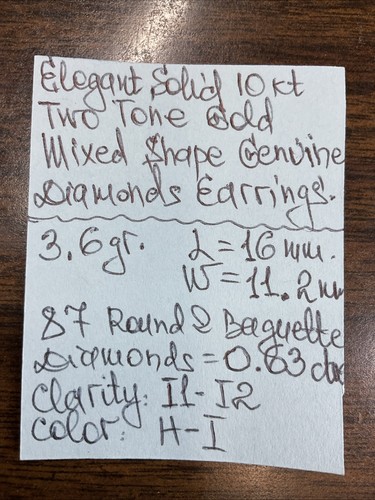 Elegant Solid 10 kt
Two Tone Gold
Mixed Shape Genuine
Diamonds Earrings.
3.6gr. L = 16 mm.
W = 11.2 mm
87 Round & Baguette
Diamonds = 0.63 ctw
Clarity: I1 - I2
Color: H - I